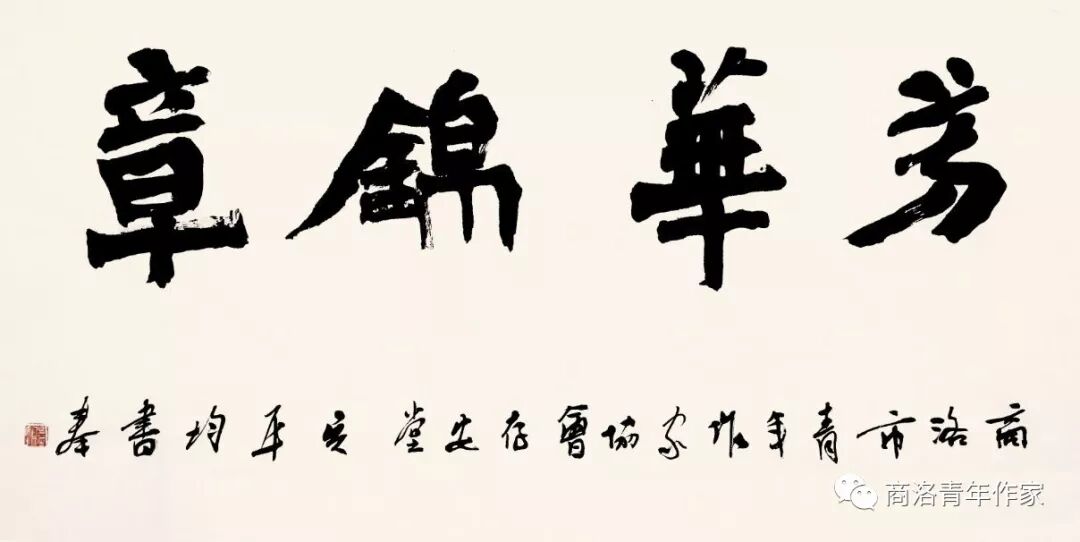 芳華錦章
商洛市青年作家协會存安堂平均書奉
商洛青年作家